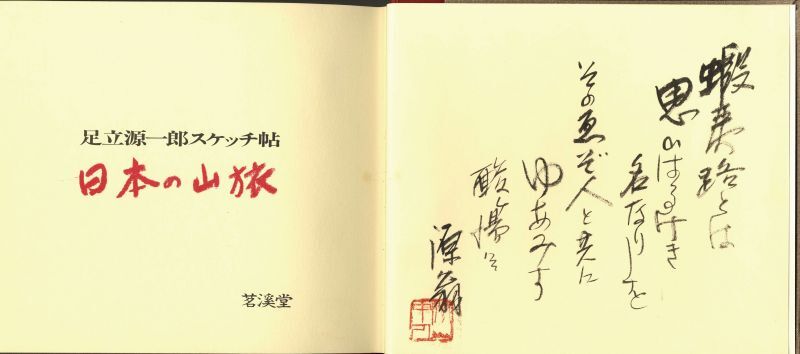 足立源一郎スケッチ帖
日本の山旅
茗溪堂
蝦夷路とは
思いはるけき
名なりしを
そのゑぞ人と共に
ゆあみす
酸湯
源翁